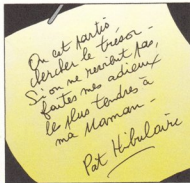 On est partis
chercher le trésor -
Si on ne revient pas,
faites mes adieux
les plus tendres à
ma Maman -
Pat Hibulaire